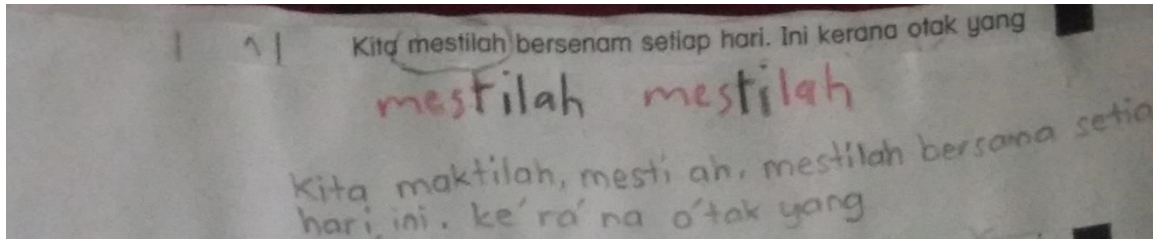 Kita mestilah bersenam setiap hari. Ini kerana otak yang
mestilah mestilah
Kita maktilah, mesti ah, mestilah bersama setia
hari ini. ke'ra'na o'tak yang